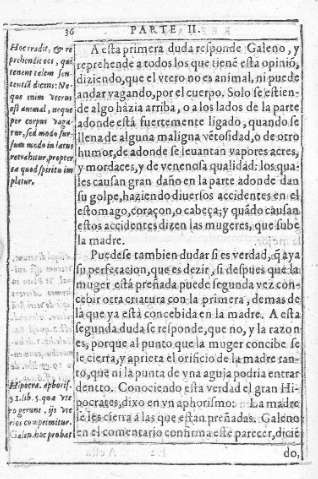 36 PARTE II.
A esta primera duda responde Galeno, y
reprehende a todos los que tienẽ esta opiniõ,
diziendo, que el vtero no es animal, ni puede
andar vagando, por el cuerpo. Solo se estien-
de algo házia arriba, o a los lados de la parte
adonde està fuertemente ligado, quando se
llena de alguna maligna vẽtosidad, o de otro
humor, de adonde se leuantan vapores acres,
y mordaces, y de venenosa qualidad: los qua-
les causan gran daño en la parte adonde dan
su golpe, haziendo diuersos accidentes en el
estomago, coraçon, o cabeça; y quãdo causan
estos accidentes dizen las mugeres, que sube
la madre.
Puedese tambien dudar si es verdad, q̃ aya
su perfetacion, que es dezir, si despues que la
muger està preñada puede segunda vez con-
cebir otra criatura con la primera, demas de
la que ya està concebida en la madre. A esta
segunda duda se responde, que no, y la razon
es, porque al punto que la muger concibe se
le cierra, y aprieta el orificio de la madre tan-
to, que ni la punta de vna aguja podria entrar
dentro. Conociendo esta verdad el gran Hi-
pocrates, dixo en vn aphorismo: La madre
se les cierra a las que estan preñadas. Galeno
en el comentario confirma este parecer, diciẽ
do,
Hoc tradit, & re
prehendit eos, qui
tenent talem sen
tentiã dicens: Ne-
que enim vterus
est animal, neque
per corpus vaga-
tur, sed modo sur-
sum modo in latus
retrahitur, propter
ea quod spiritu im
pletur.
Hipocra. aphoris.
51. lib. 5. quæ vte
ro gerunt, ijs vte
rus comprimitur.
Galen. hoc probat